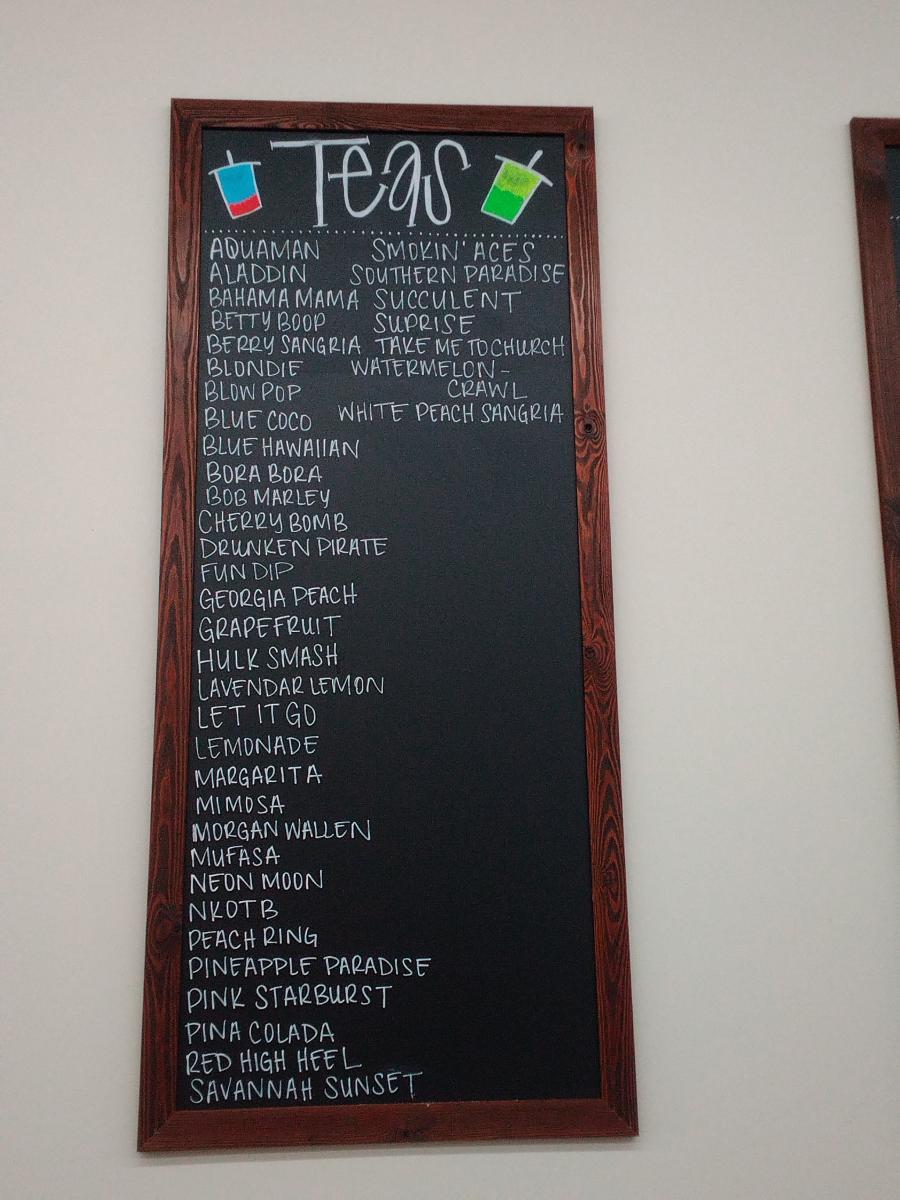 Teas
AQUAMAN
ALADDIN
BAHAMA MAMA
BETTY BOOP
BERRY SANGRIA
BLONDIE
BLOW POP
BLUE COCO
BLUE HAWAIIAN
BORA BORA
BOB MARLEY
CHERRY BOMB
DRUNKEN PIRATE
FUN DIP
GEORGIA PEACH
GRAPEFRUIT
HULK SMASH
LAVENDAR LEMON
LET IT GO
LEMONADE
MARGARITA
MIMOSA
MORGAN WALLEN
MUFASA
NEON MOON
NKOTB
PEACH RING
PINEAPPLE PARADISE
PINK STARBURST
PINA COLADA
RED HIGH HEEL
SAVANNAH SUNSET
SMOKIN' ACES
SOUTHERN PARADISE
SUCCULENT
SUPRISE
TAKE ME TO CHURCH
WATERMELON-
CRAWL
WHITE PEACH SANGRIA